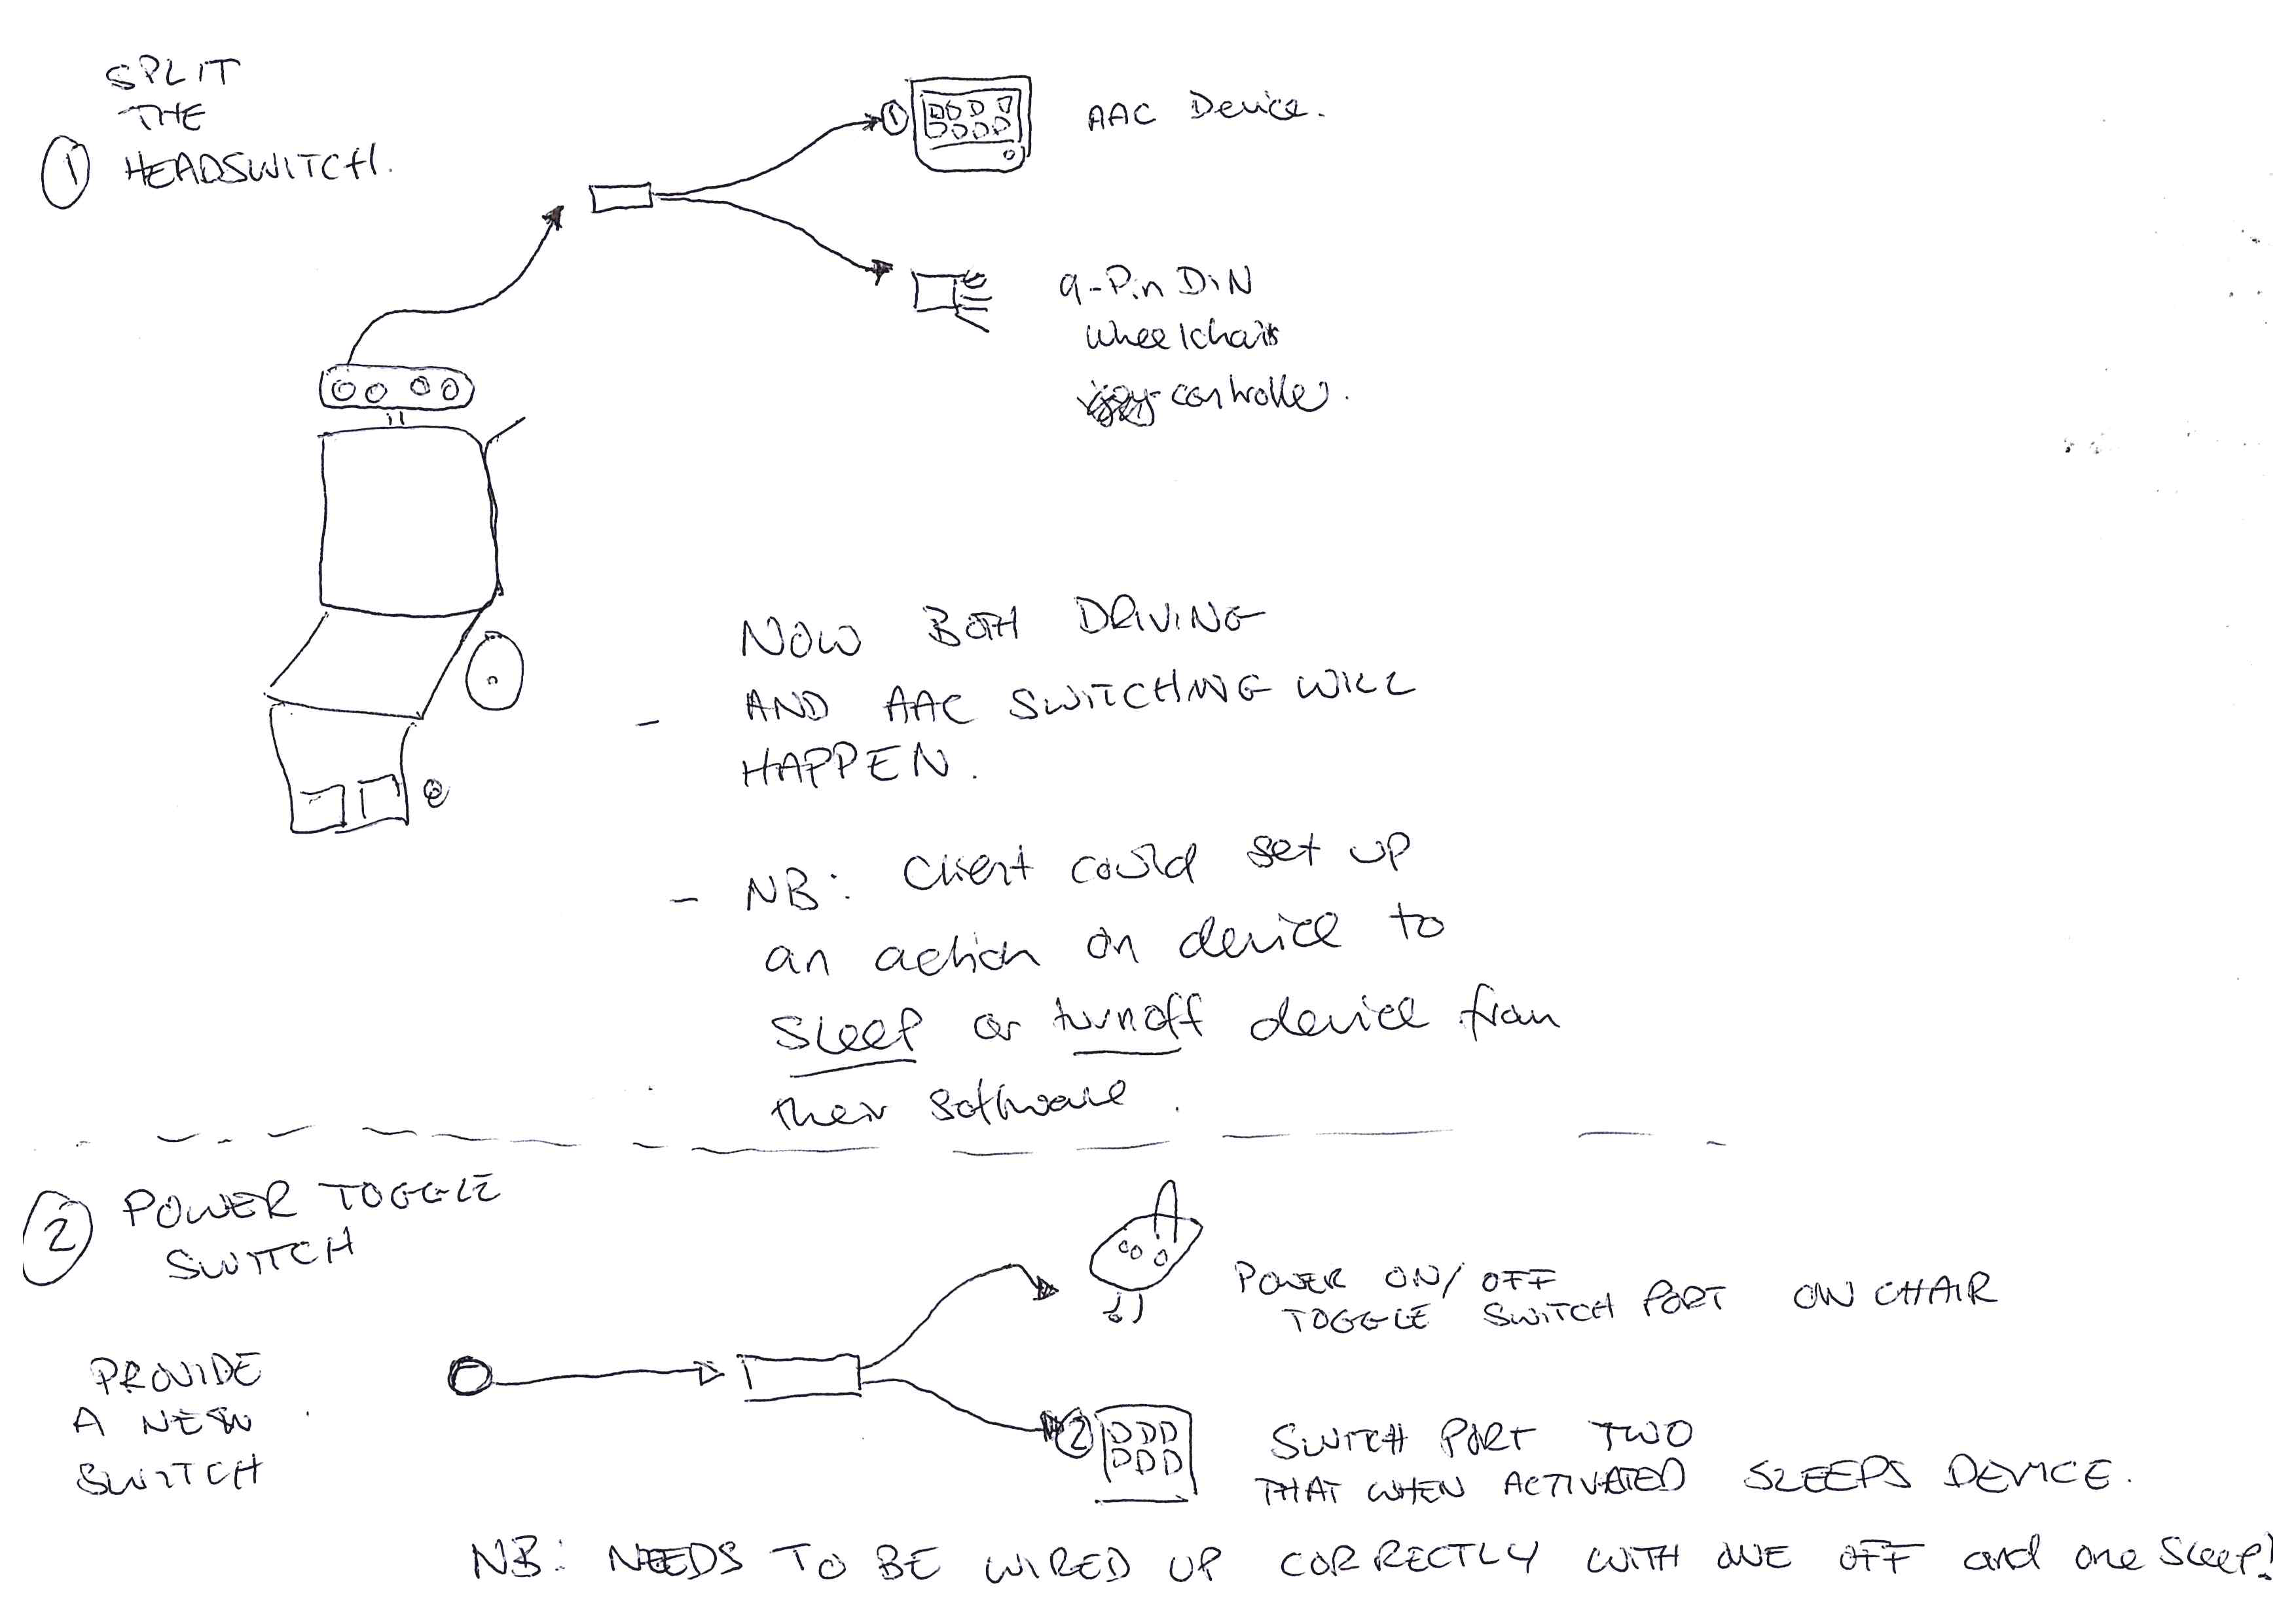 SPLIT
THE
① HEADSWITCH.
① AAC Device.
9-Pin DiN
wheelchair
controller.
NOW BOTH DRIVING
- AND AAC SWITCHING WILL
HAPPEN.
- NB: Client could set up
an action on device to
sleep or turnoff device from
their software.
② POWER TOGGLE
SWITCH
POWER ON/OFF
TOGGLE SWITCH PORT ON CHAIR
PROVIDE
A NEW
SWITCH
②
SWITCH PORT TWO
THAT WHEN ACTIVATED SLEEPS DEVICE.
NB: NEEDS TO BE WIRED UP CORRECTLY WITH ONE OFF and one Sleep!